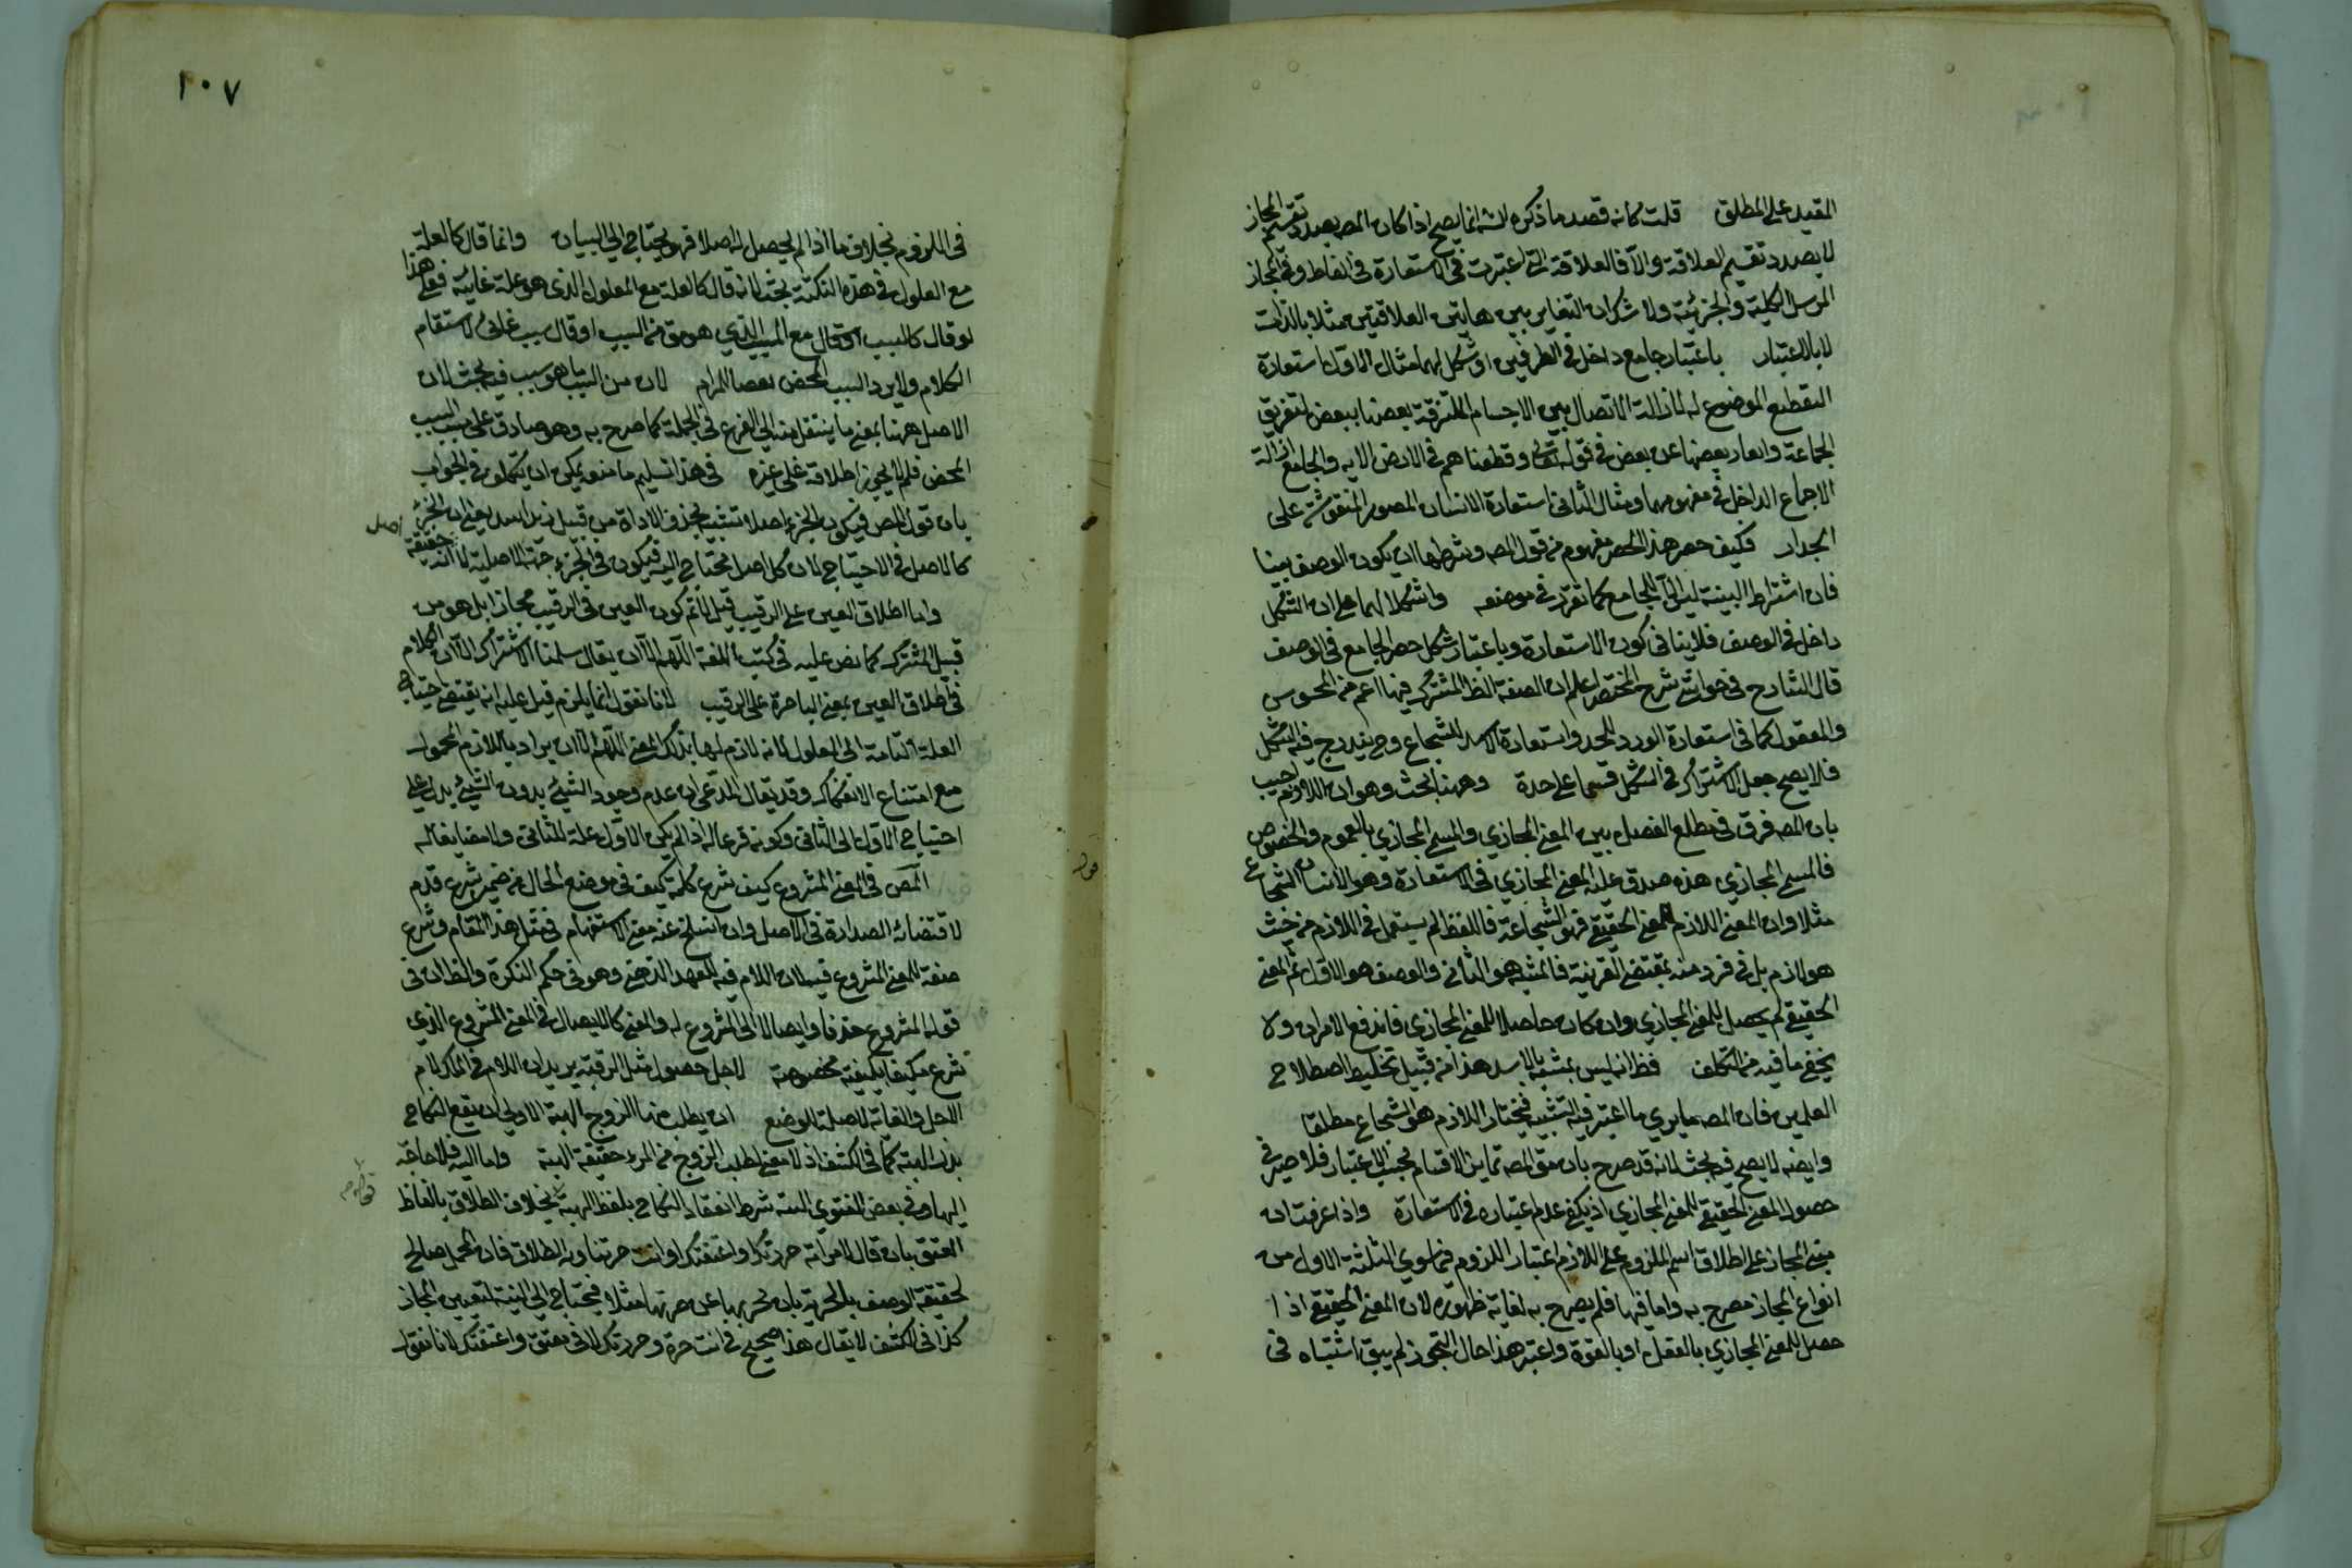 المقيد على المطلق قلت كانه قصد ما ذكره لانه انما يصح اذا كان المص بصدد تقسيم المجاز
لا بصدد تقسيم العلاقة والا فالعلاقة التي اعتبرت في الاستعارة في الفاظ وفي المجاز
المرسل الكلية والجزئية ولا شك ان التغاير بين هاتين العلاقتين مثلا بالذات
لا بالاعتبار باعتبار جامع داخل في الطرفين او شكل لهما مثال الاول استعارة
التقطيع الموضوع لازالة الاتصال بين الاجسام الملتزقة بعضها ببعض لتفريق
الجماعة وابعاد بعضها عن بعض في قوله تعالى وقطعناهم في الارض الاية والجامع ازالة
الاجماع الداخل في مفهومهما ومثال الثاني استعارة الانسان المصور المنقوشة على
الجدار فكيف حصر هذا الحصر مفهوم من قول المص وشرطها ان يكون الوصف بينا
فان اشتراط البينة ليس الا للجامع كما تقرر في موضعه واشكلا لهما على ان الشكل
داخل في الوصف فلا ينافي كون الاستعارة وباعتبار شكل حصر الجامع في الوصف
قال الشارح في حواشي شرح المختصر اعلم ان الصفة الظ المشترك فيها اعم من المحسوس
والمعقول كما في استعارة الورد للخد واستعارة الاسد للشجاع وح يندرج فيه الشكل
فلا يصح جعل الاشتراك في الشكل قسما على حدة وههنا بحث وهو ان اللازم اجيب
بان المص فرق في مطلع الفصل بين المعنى المجازي والمسمى المجازي بالعموم والخصوص
فالمسمى المجازي هذه صدق عليه المعنى المجازي في الاستعارة وهو الانسان الشجاع
مثلا وان المعنى اللازم للمعنى الحقيقي فهو الشجاعة فاللفظ لم يستعمل في اللازم من حيث
هو لازم بل في فرد منه بمقتضى القرينة فالمشبه هو الثاني والوصف هو الاول ثم المعنى
الحقيقي لم يحصل للمعنى المجازي وان كان حاصلا للمعنى المجازي فاندفع الامران ولا
يخفى ما فيه من التكلف فظ انه ليس بمشبه بالاسد هذا من قبيل تخليط اصطلاح
العلمين فان المص ما يري ما اعتبر فيه التشبيه فيختار اللازم هو الشجاع مطلقا
وايضه لا يصح فيه بحث لانه قد صرح بان تمايز الاقسام بحسب الاعتبار فلا ضير في
حصول المعنى الحقيقي للمعنى المجازي اذ يكفي عدم اعتباره في الاستعارة واذا عرفت ان
مبنى المجاز على اطلاق اسم الملزوم على اللازم اعتبار اللزوم فيما سوى الثلثة الاول من
انواع المجاز مصرح به واما فيها فلم يصرح به لغاية ظهوره لان المعنى الحقيقي اذا
حصل للمعنى المجازي بالفعل او بالقوة واعتبر هذا حال التجوز لم يبق اشتباه في
١٠٧
في اللزوم بخلاف ما اذا لم يحصل له اصلا فهو يحتاج الى البيان وانما قال كالعلة
مع المعلول في هذه النكتة بحث لانه قال كالعلة مع المعلول الذي هو علة غائية فعلى هذا
لو قال كالسبب او قال مع المسبب الذي هو مق من السبب او قال سبب غائي لاستقام
الكلام ولا يرد السبب المحض نقصا للمرام لان من السبب ما هو سبب فيه بحث لان
الاصل ههنا بمعنى ما ينتقل منه الى الفرع في الجملة كما صرح به وهو صادق على السبب
المحض فلم لا يجوز اطلاقه على غيره في هذا تسليم ما منعه يمكن ان يتكلف في الجواب
بان قول المص فيكون الجزء اصلا تشبيه بحذف الاداة من قبيل زيد اسد يعني ان الجزء اصل
كالاصل في الاحتياج لان كل اصل محتاج اليه فيكون في الجزء جهة الاصلية لا انه حقيقة
واما اطلاق العين على الرقيب قيل لا تم كون العين في الرقيب مجازا بل هو من
قبيل المشترك كما نص عليه في كتب اللغة اللهم الا ان يقال سلمنا الاشتراك الا ان الكلام
في اطلاق العين بمعنى الباصرة على الرقيب لانا نقول انما يلزم قيل عليه انه يقتضي احتياج
العلة التامة الى المعلول لانه لازم لها بذلك المعنى اللهم الا ان يراد باللازم المحمول
مع امتناع الانفكاك وقد يقال المدعى ان عدم وجود الشيئ بدون الشيئ يدل على
احتياج الاول الى الثاني وكونه فرعا له اذا لم يكن الاول علة للثاني ولا مضايفا له
المص في المعنى المشروع كيف شرع كلمة كيف في موضع الحال من ضمير شرع قدم
لاقتضائه الصدارة في الاصل وان انسلخ عنه معنى الاستفهام في مثل هذا المقام وشرع
صفة للمعنى المشروع لان اللام فيه للعهد الذهني وهو في حكم النكرة والظ ان في
قوله المشروع حذفا وايصالا الى المشروع له والمعنى كالايصال في المعنى المشروع الذي
شرع مكيفا بكيفية مخصوصة لاجل حصول مثل الرقبة يريد ان اللام في لملك لام
الاجل والغاية لا صلة الوضع ان يطلب منها الزوج الهبة الاولى ان يقع النكاح
بذلك الهبة كما في الكشف اذ لا معنى لطلب الزوج من المرء حقيقة الهبة واما النية فلا حاجة
اليها وفي بعض الفتوى النية شرط انعقاد النكاح بلفظ الهبة بخلاف الطلاق بالفاظ
العتق بان قال لامرأته حررتك او اعتقتك او انت حرة ناويا الطلاق فان المحل صالح
لحقيقة الوصف بالحرية بان يخبر بها عن حريتها مثلا فيحتاج الى النية لتعيين المجاز
كذا في الكشف لا يقال هذا صحيح في انت حرة وحررتك لا في معتق واعتقتك لانا نقول